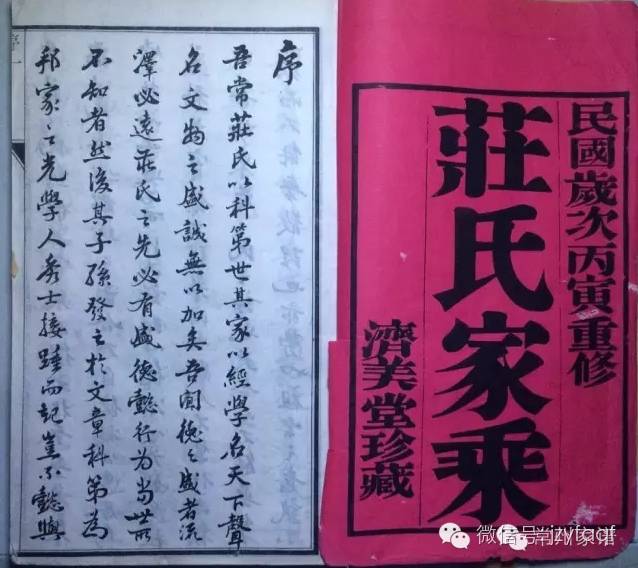 民國歲次丙寅重修
莊氏家乘
濟美堂珍藏
序
吾常莊氏以科第世其家以經學名天下聲
名文物之盛誠無以加矣吾聞德之盛者流
澤必遠莊氏之先必有盛德懿行为當世所
不知者然後其子孫發之於文章科第為
邦家之光學人秀士接踵而起豈不懿與
序一
微信号: jzyfacf
常州家谱